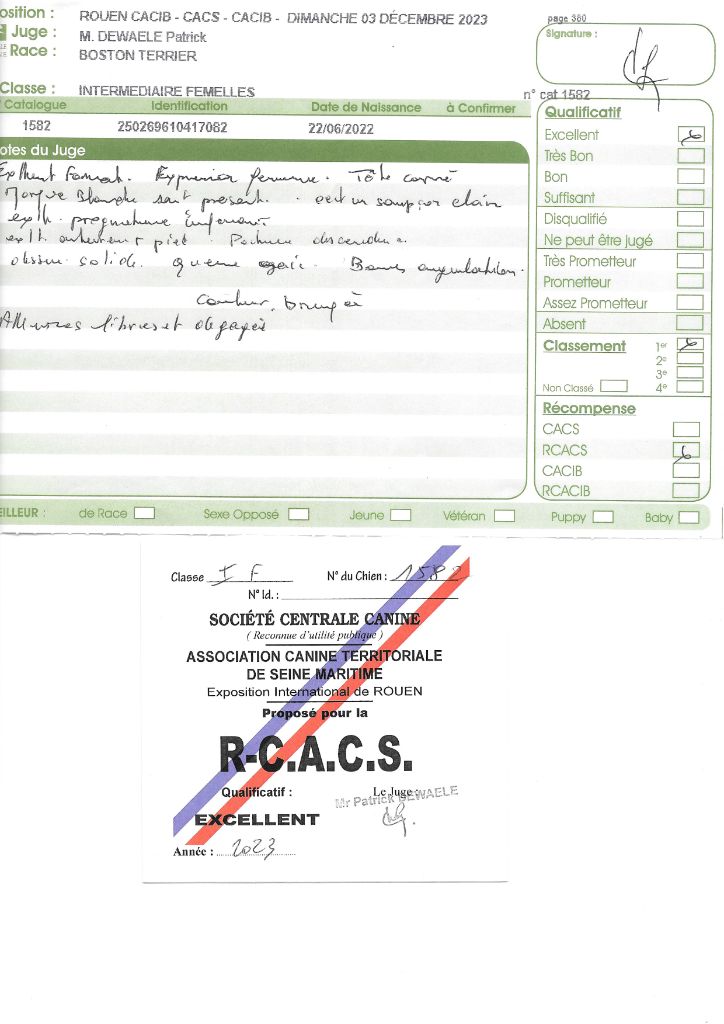 osition : ROUEN CACIB - CACS - CACIB - DIMANCHE 03 DÉCEMBRE 2023
page 380
Juge : M. DEWAELE Patrick
Signature :
Race : BOSTON TERRIER
Classe : INTERMEDIAIRE FEMELLES
n° cat 1582
Catalogue Identification Date de Naissance à Confirmer
1582 250269610417082 22/06/2022
Qualificatif
Excellent
Très Bon
Bon
Suffisant
Disqualifié
Ne peut être jugé
Très Prometteur
Prometteur
Assez Prometteur
Absent
Classement 1er
2e
3e
Non Classé 4e
Récompense
CACS
RCACS
CACIB
RCACIB
otes du Juge
Format. Expression féminine. Tête carré
Blanche sont présent. clair
exllt.
exllt. Poitrine descendue.
solide. Bonnes angulation.
Couleur bringée
Allures libres et dégagés
EILLEUR : de Race Sexe Opposé Jeune Vétéran Puppy Baby
Classe I F N° du Chien : 1582
N° Id. :
SOCIÉTÉ CENTRALE CANINE
( Reconnue d'utilité publique )
ASSOCIATION CANINE TERRITORIALE
DE SEINE MARITIME
Exposition International de ROUEN
Proposé pour la
R-C.A.C.S.
Qualificatif : Le Juge :
Mr Patrick DEWAELE
EXCELLENT
Année : 2023